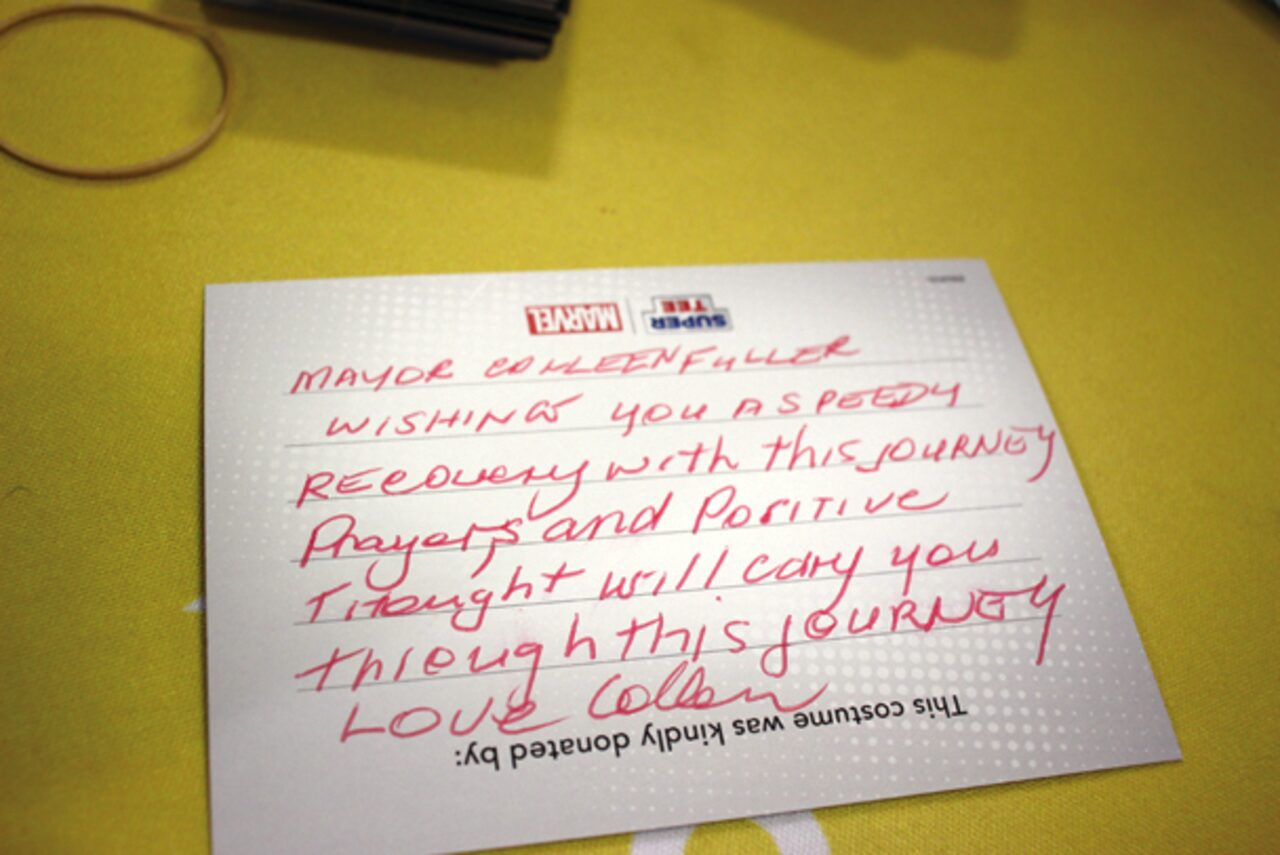 SUPER TEE | MARVEL
MAYOR COLLEEN FULLER
WISHING YOU A SPEEDY
RECOVERY with this JOURNEY
Prayers, and Positive
Thought will cary you
through this JOURNEY
LOVE Colleen
This costume was kindly donated by: